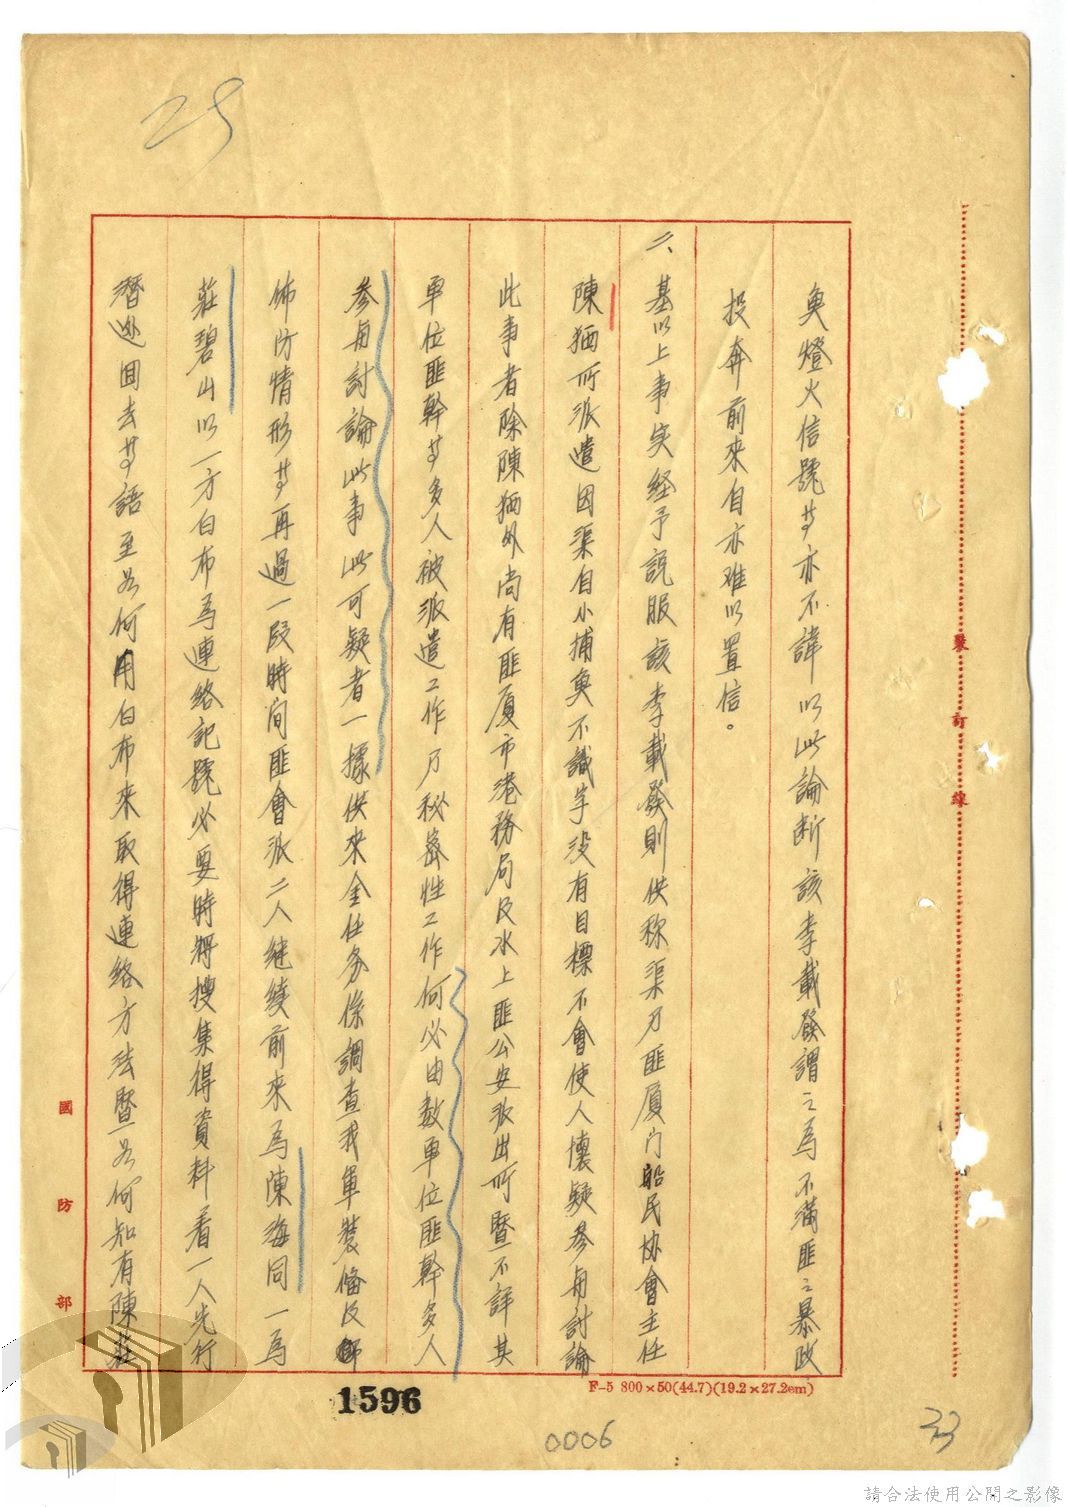 25
魚燈火信號等亦不諱以此論断該李載發謂之為不滿匪之暴政
投奔前來自亦难以置信。
二、基以上事实経予説服該李載發則供称渠乃匪厦门船民协會主任
陳猫所派遣因渠自小捕魚不識字没有目標不會使人懷疑參與討論
此事者除陳猫外尚有匪厦市港務局及水上匪公安派出所暨不詳其
單位匪幹等多人被派遣工作乃秘密性工作何必由数單位匪幹多人
參與討論此事此可疑者一據供來金任务係調查我軍裝俻及
佈防情形等再過一段時间匪會派二人继续前來一為陳海同一為
莊碧山以一方白布為連絡記號必要時將搜集得資料着一人先行
潛返回去等語至如何用白布來取得連絡方法暨如何知有陳莊
裝訂線
國防部
F-5 800×50(44.7)(19.2×27.2em)
1596
0006
33
請合法使用公開之影像